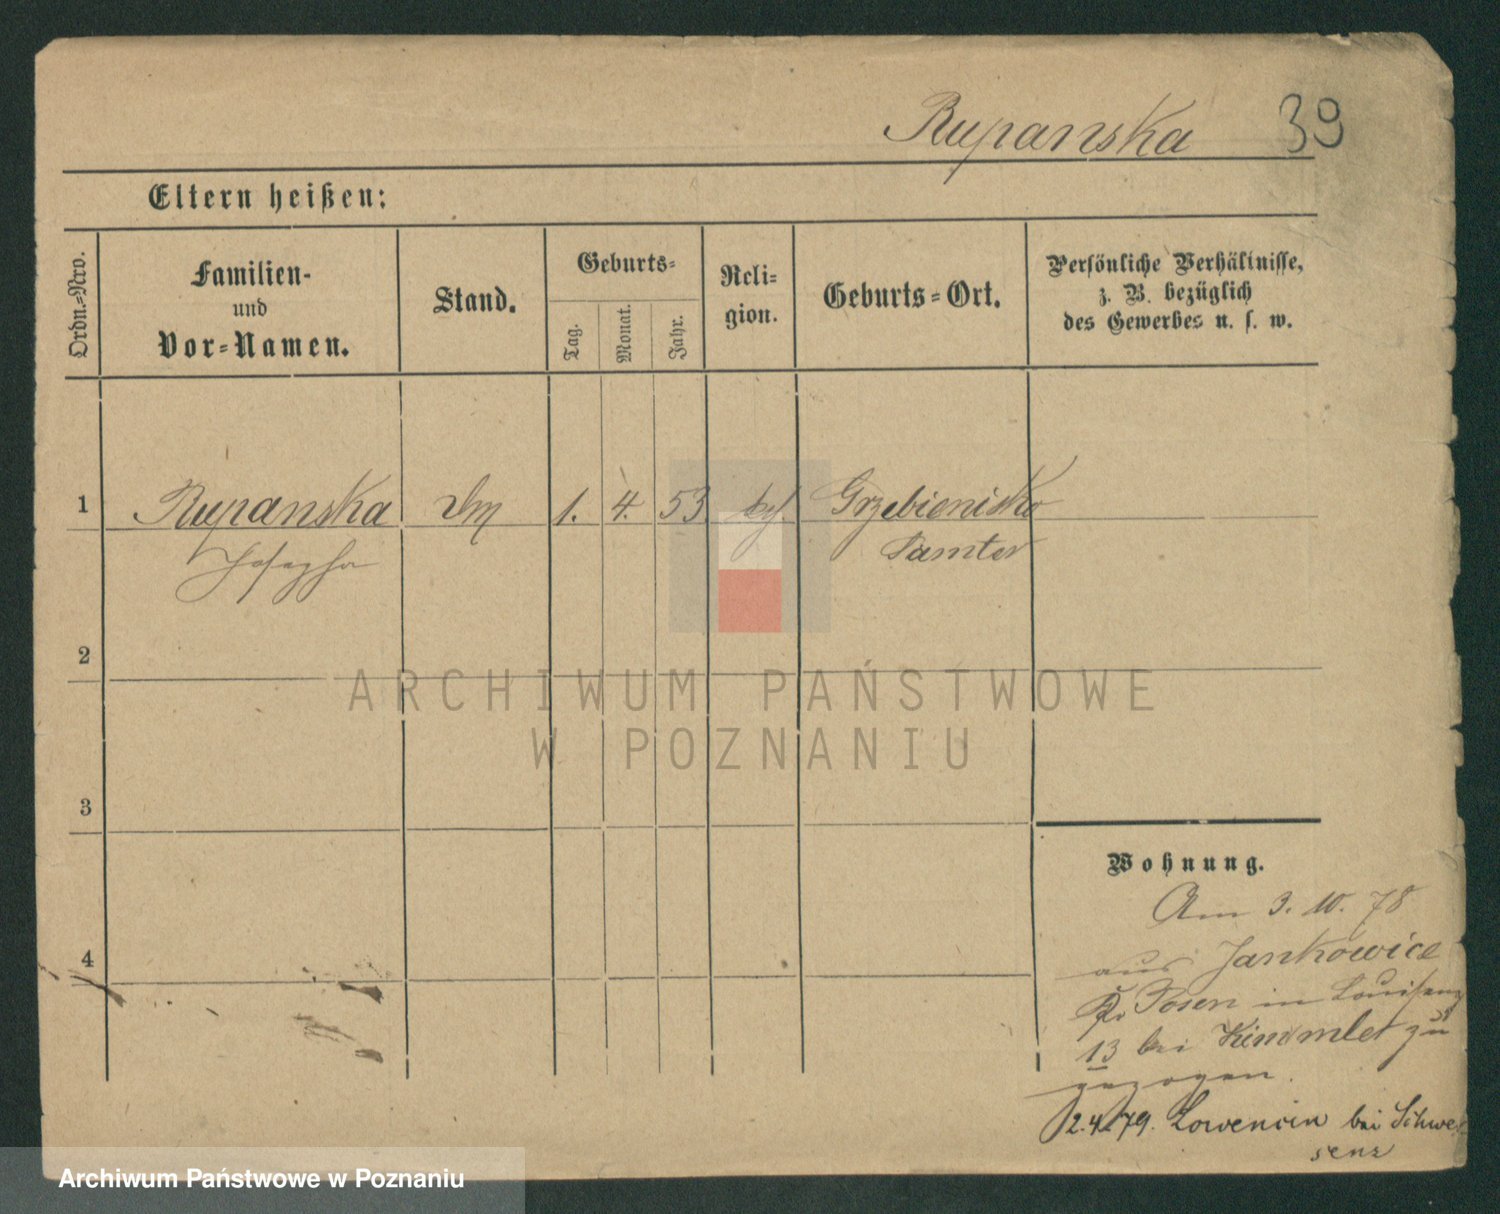 Rupanska 39
Eltern heißen:
Ordn.=Nro.
Familien-
und
Vor=Namen.
Stand.
Geburts=
Tag.
Monat.
Jahr.
Reli=
gion.
Geburts=Ort.
Persönliche Verhältnisse,
z. B. bezüglich
des Gewerbes u. s. w.
1 Rupanska 1. 4. 53 Grzebienisko
Josepha Samter
2
3
4
ARCHIWUM PAŃSTWOWE
W POZNANIU
Wohnung.
Am 3. 10. 78
aus Jankowice
Kr. Posen in Louisen
13 bei zu
gezogen.
2.4.79. Lowencin bei Schwer
senz
Archiwum Państwowe w Poznaniu